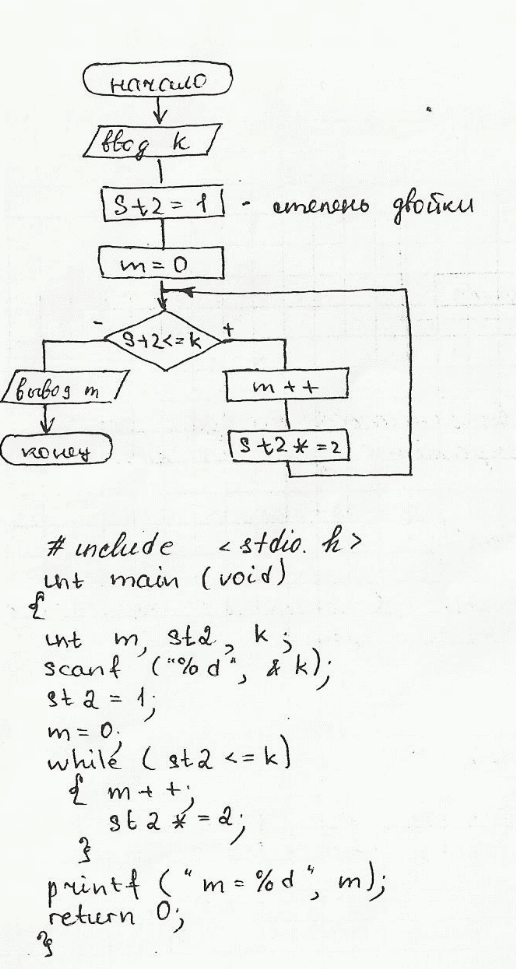 начало
ввод k
St2 = 1 - степень двойки
m = 0
- st2<=k +
вывод m
m++
st2*=2
конец
# include <stdio.h>
int main (void)
{
int m, st2, k;
scanf ("%d", &k);
st2 = 1;
m = 0;
while (st2 <= k)
{ m++;
st2 *= 2;
}
printf ("m=%d", m);
return 0;
}